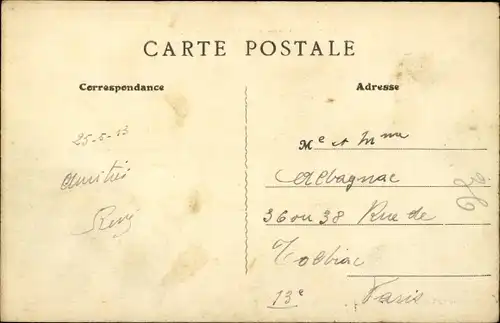 CARTE POSTALE
Correspondance
Adresse
25-6-13
Amitiés
Mᵉ et Mᵐᵐᵉ
Albagnac
36 ou 38 Rue de
Tolbiac
13ᵉ Paris